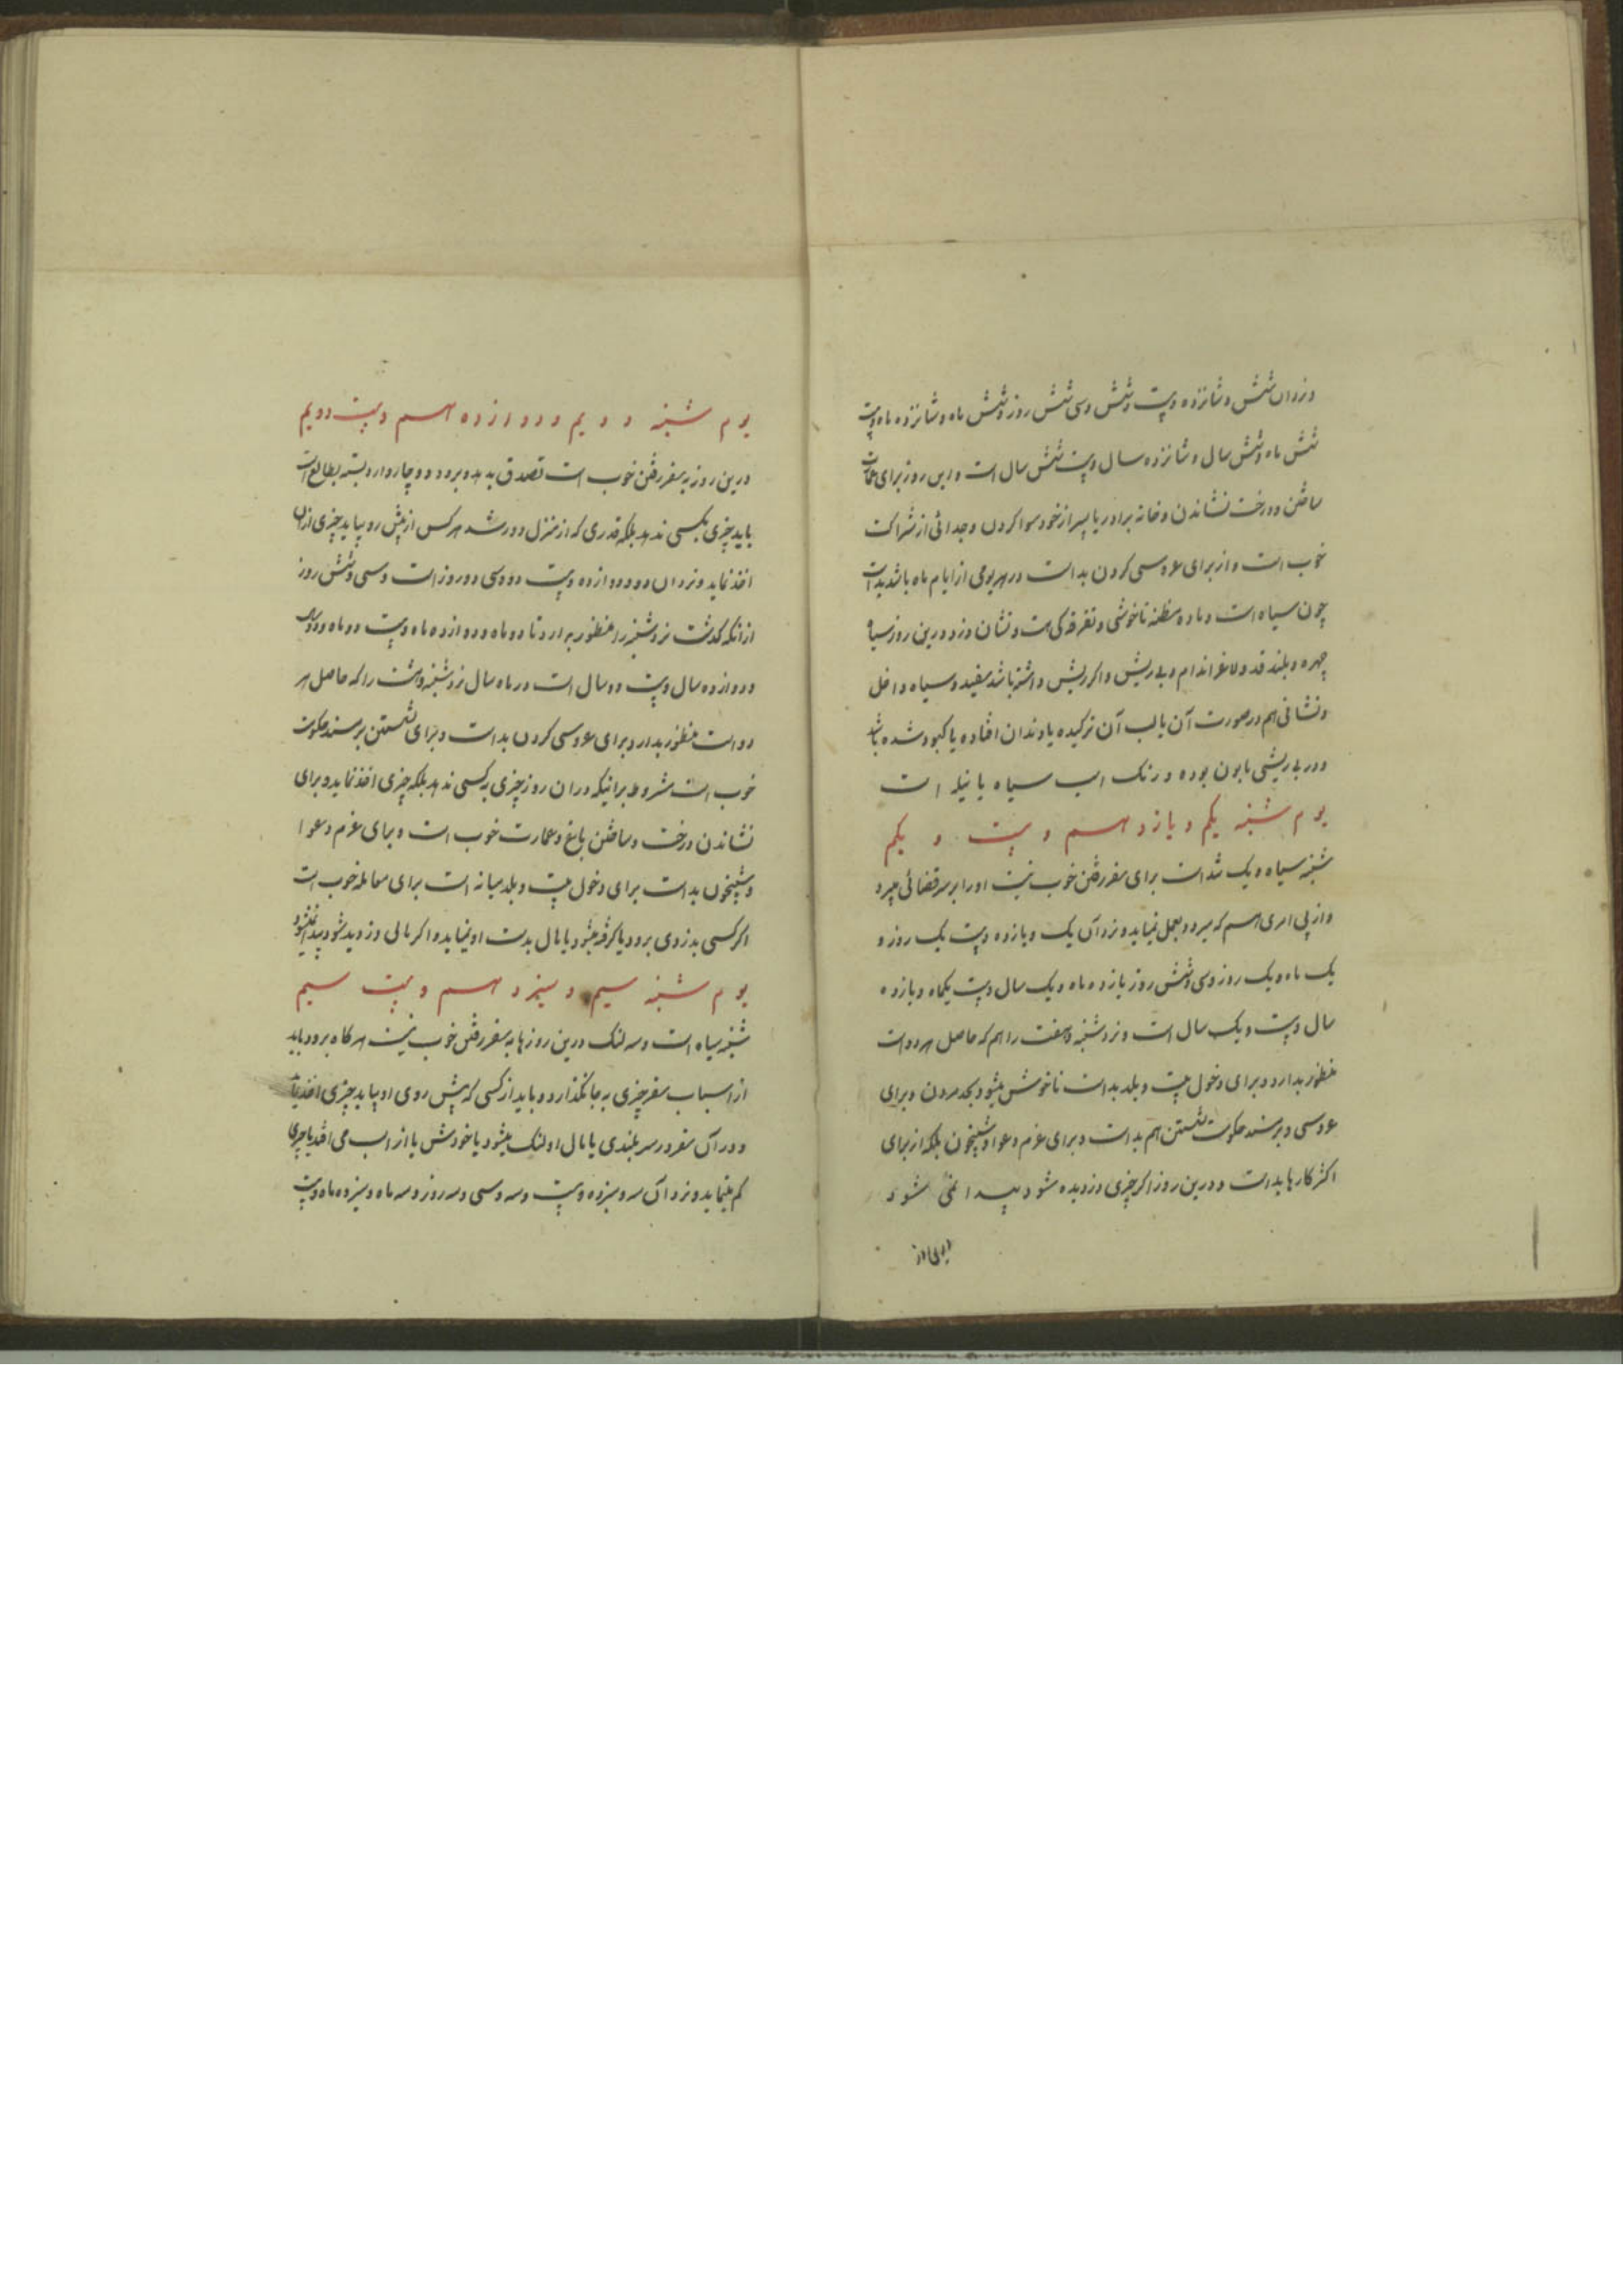 و نزد ان شش و شانزده و بیست و شش و سی شش روز و شش ماه و شانزده ماه و بیست
شش ماه و شش سال و شانزده سال و بیست شش سال است و این روز برای عمارت
ساختن و درخت نشاندن و خانه برادر یا پسر از خود سوا کردن و جدائی از شراکت
خوب است و از برای عروسی کردن بد است در هر یومی از ایام ماه باشد بد است
چون سیاه است و ماده مظنه ناخوشی و تفرقه کی است و نشان دزد درین روز سیاه
چهره و بلند قد و لاغر اندام و بی ریش و اکر ریش داشته باشد سفید و سیاه داخل
و نشانی هم در صورت آن یا لب آن ترکیده یا دندان افتاده یا کبود شده باشد
و در بی ریشی مابون بوده و رنک اسب سیاه یا نیله است
یوم شنبه یکم و یازدهم و بیست و یکم
شنبه سیاه و یک شد است برای سفر رفتن خوب نیست او را بر سر قضائی میبرد
و از پی امری هم که میرود بعمل نمیاید و نزد آن یک و یازده و بیست یک روز و
یک ماه و یک روز و سی و شش روز یازده ماه و یک سال و بیست یکماه و یازده
سال و بیست و یک سال است و نزد شنبه و هفت را هم که حاصل هر دو است
منظور بدارد و برای دخول بیت و بلد بد است ناخوش میشود بحد مردن و برای
عروسی و بر مسند حکومت نشستن هم بد است و برای عزم دعوا و شبیخون بلکه از برای
اکثر کارها بد است و درین روز اکر چیزی دزدیده شود پیدا نمی شود
یوم شنبه دویم و دوازدهم و بیست دویم
درین روز به سفر رفتن خوب است تصدق بدهد و برود و چاروادار و بسته بطالع است
باید چیزی بکسی ندهد بلکه قدری که از منزل دور شد هر کس از پیش رو بیاید چیزی از ان
اخذ نماید و نزد ان دو و دوازده و بیست دو و سی دو روز است و سی و شش روز
از انکه کذشت نزد شنبه را منظور بدارد تا دو ماه و دوازده ماه و بیست دو ماه و دو سال
و دوازده سال و بیست دو سال است در ماه سال نزد شنبه و شت را که حاصل هر
دو است منظور بدارد و برای عروسی کردن بد است و برای نشستن بر مسند حکومت
خوب است مشروط بر اینکه در ان روز چیزی به کسی ندهد بلکه چیزی اخذ نماید و برای
نشاندن درخت و ساختن باغ و عمارت خوب است و برای عزم دعوا
و شبیخون بد است برای دخول بیت و بلد میانه است برای معامله خوب است
اکر کسی بدزدی برود یا کرفته میشود یا مال بدست او نمیاید و اکر مالی دزدیده شود پیدا نمیشود
یوم شنبه سیم و سیزدهم و بیست سیم
شنبه سیاه است و سه لنک درین روزها به سفر رفتن خوب نیست هر کاه برود باید
از اسباب سفر چیزی به جا نکذارد و باید از کسی که پیش روی او بیاید چیزی اخذ نماید
و در آن سفر در سر بلندی یا مال او لنک میشود یا خودش یا از اسب می افتد یا چیزی
کم مینماید و نزد آن سه و سیزده و بیست و سه و سی و سه روز و سه ماه و سیزده ماه و بیست